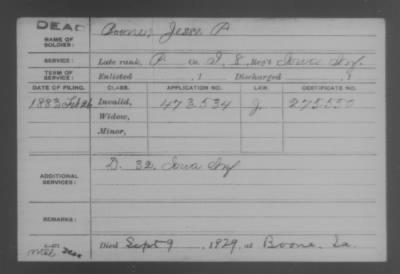 DEAD
NAME OF SOLDIER: Boone, Jesse P
SERVICE: Late rank, P Co. I, 8, Reg't Iowa Inf
TERM OF SERVICE: Enlisted , 1 Discharged , 1
DATE OF FILING. CLASS. APPLICATION NO. LAW. CERTIFICATE NO.
1883 Feb 26 Invalid, 473.534 J. 275.550
Widow,
Minor,
ADDITIONAL SERVICES: D. 32. Iowa Inf
REMARKS:
Died Sept 9, 1929, at Boone, Ia.